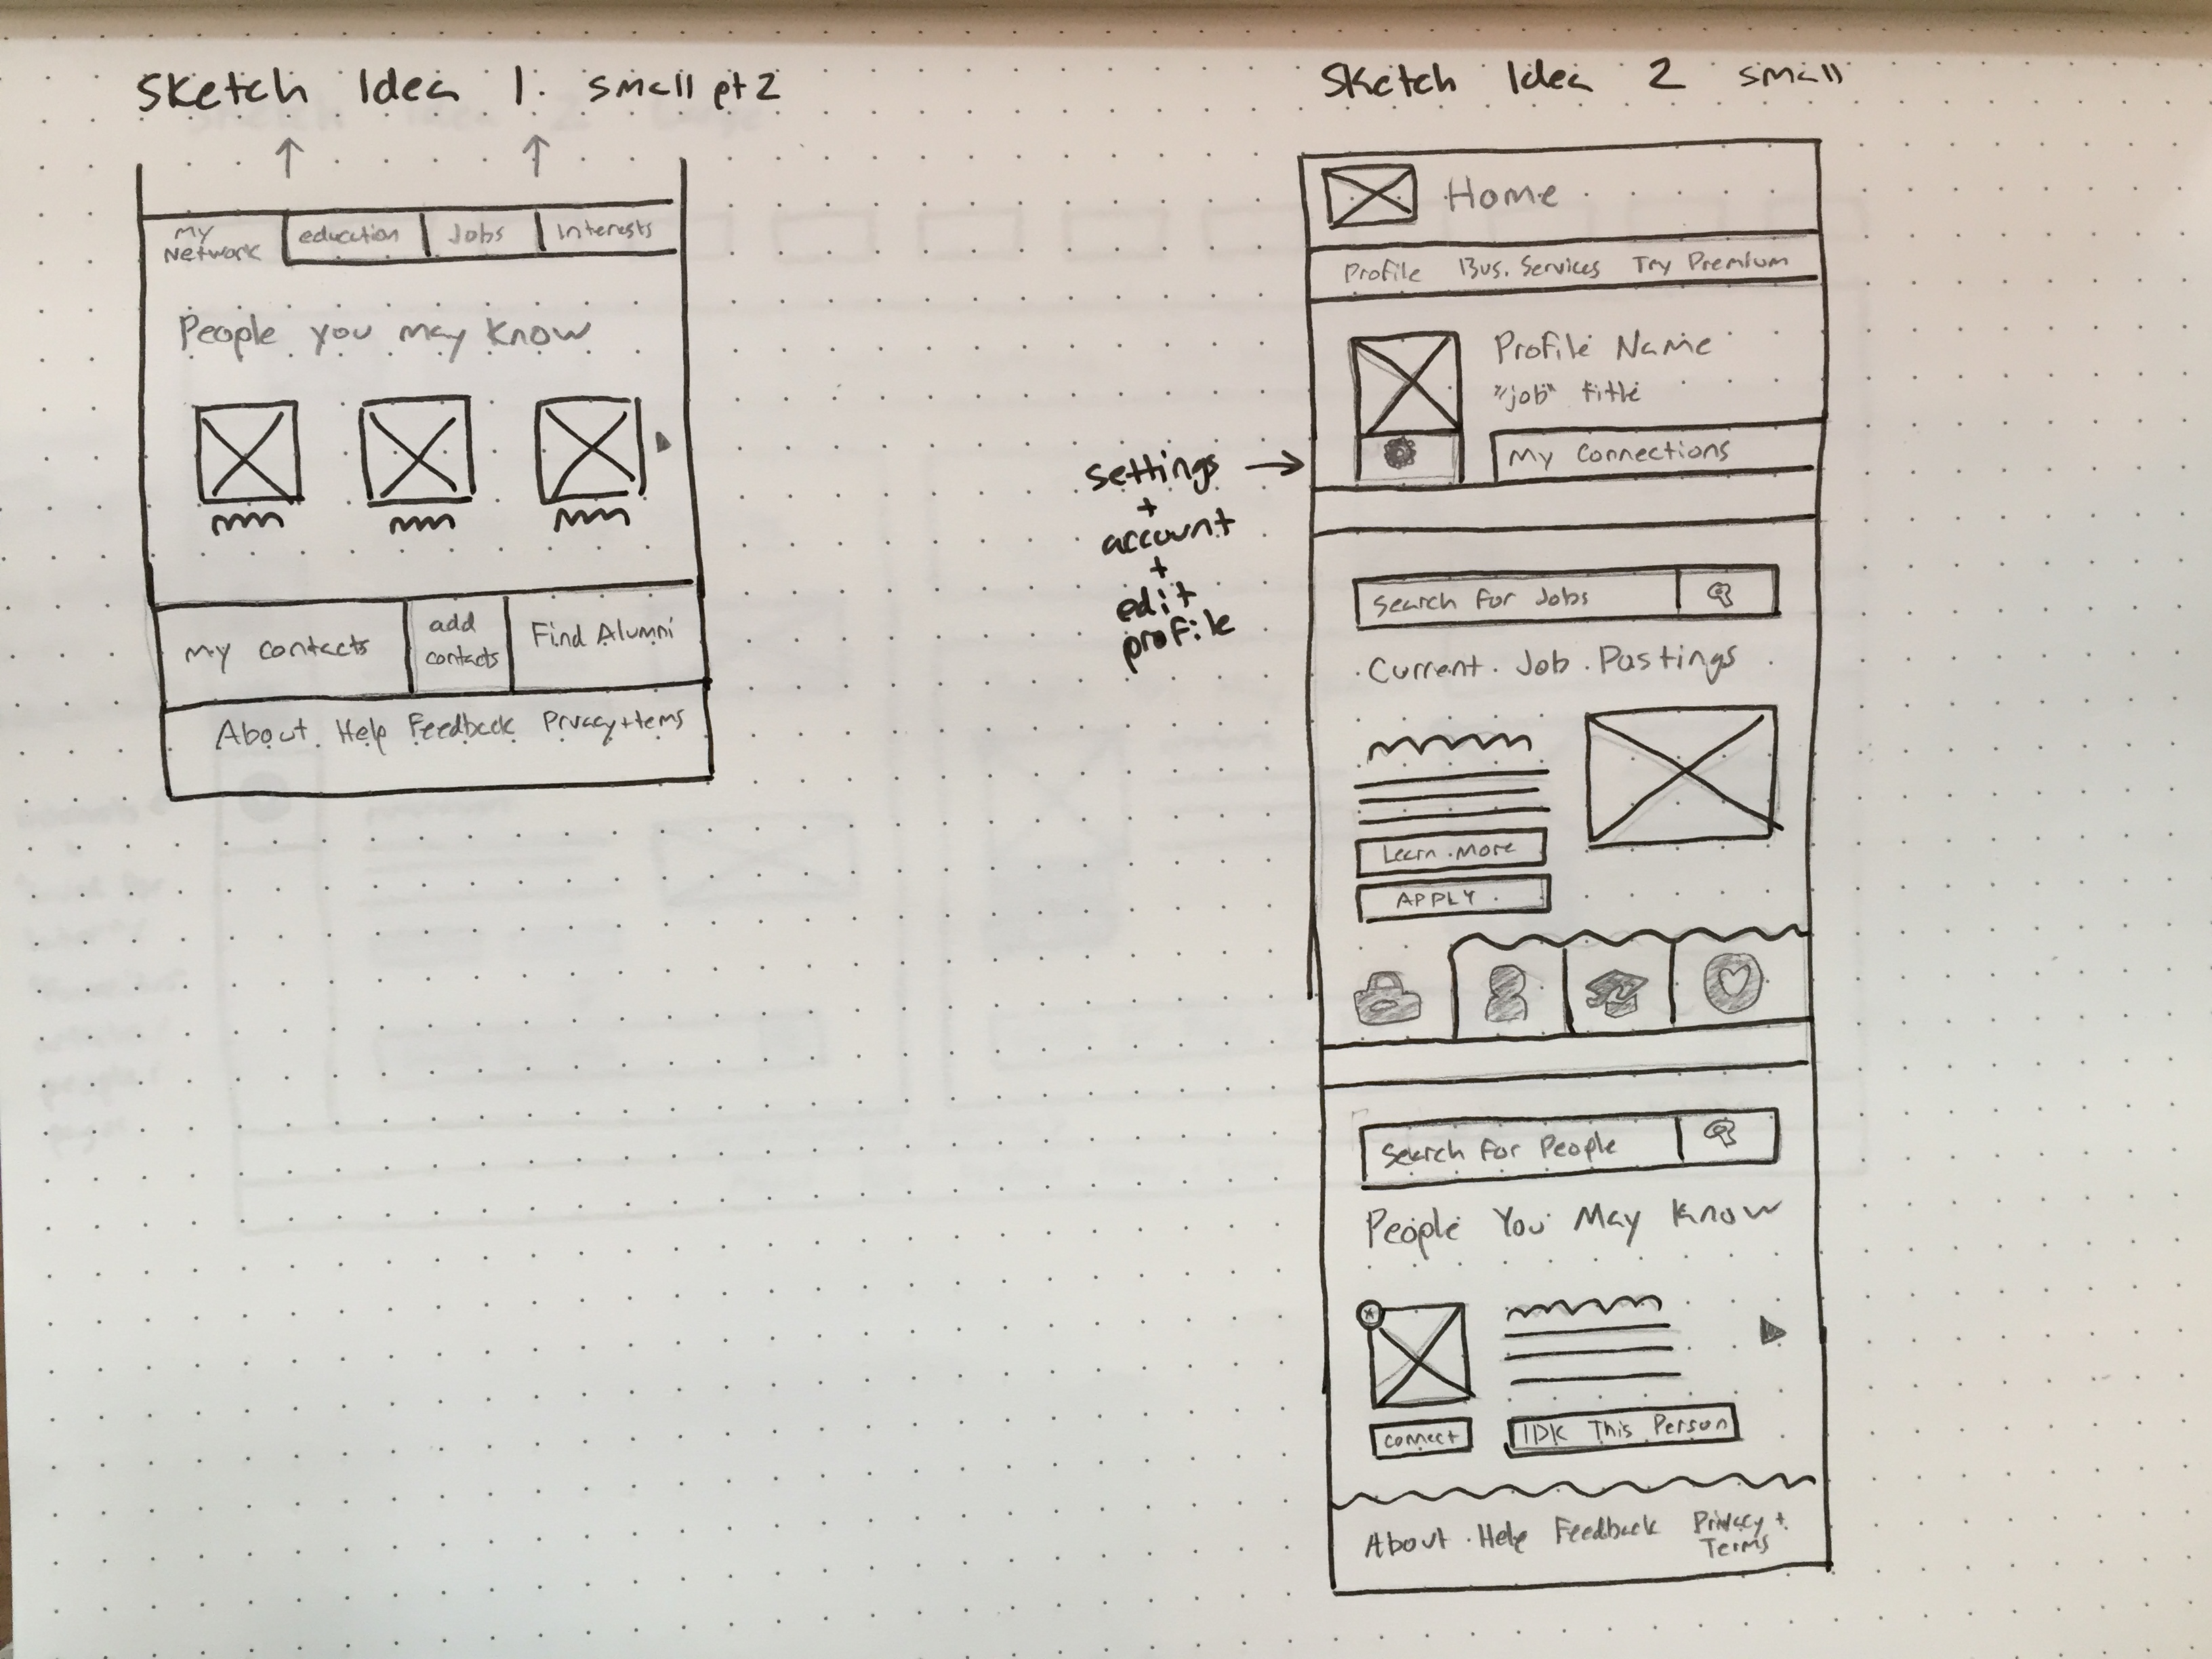 Sketch Idea 1. small pt 2
My Network
education
Jobs
Interests
People you may know
My contacts
add contacts
Find Alumni
About Help Feedback Prvacy+tems
Sketch Idea 2 small
Home
Profile Bus. Services Try Premium
Profile Name
"job" title
My Connections
settings
+
account
+
edit
profile
Search for Jobs
Current Job Postings
Learn More
APPLY
Search for People
People You May Know
connect
IDK This Person
About Help Feedback Privacy +
Terms